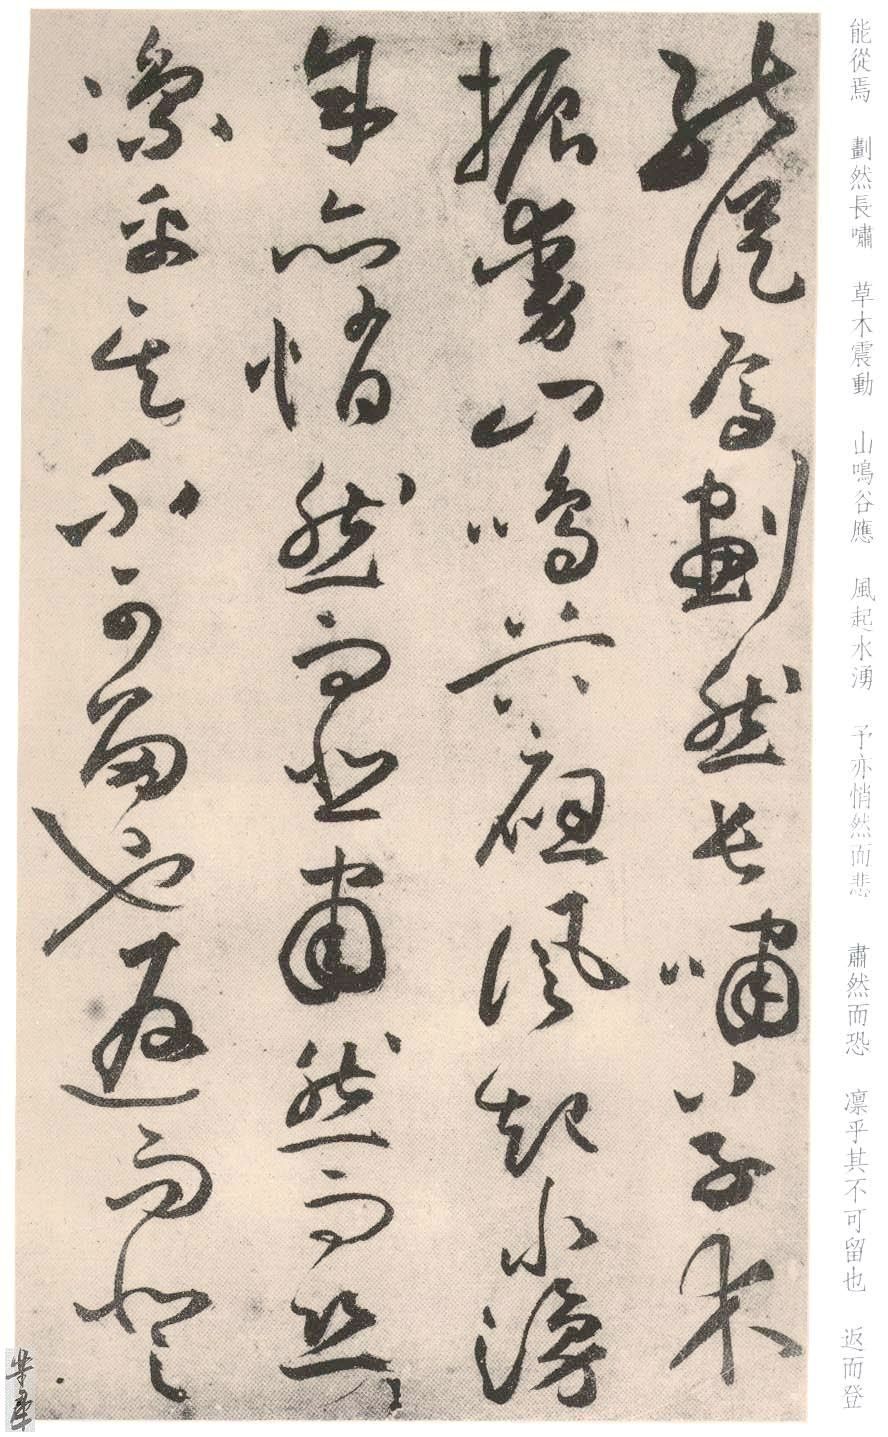 能從焉 劃然長嘯 草木震動 山鳴谷應 風起水湧 予亦悄然而悲 肅然而恐 凜乎其不可留也 返而登
能從焉劃然長嘯草木
振動山鳴谷應風起水湧
予亦悄然而悲肅然而恐
凜乎其不可留也返而登